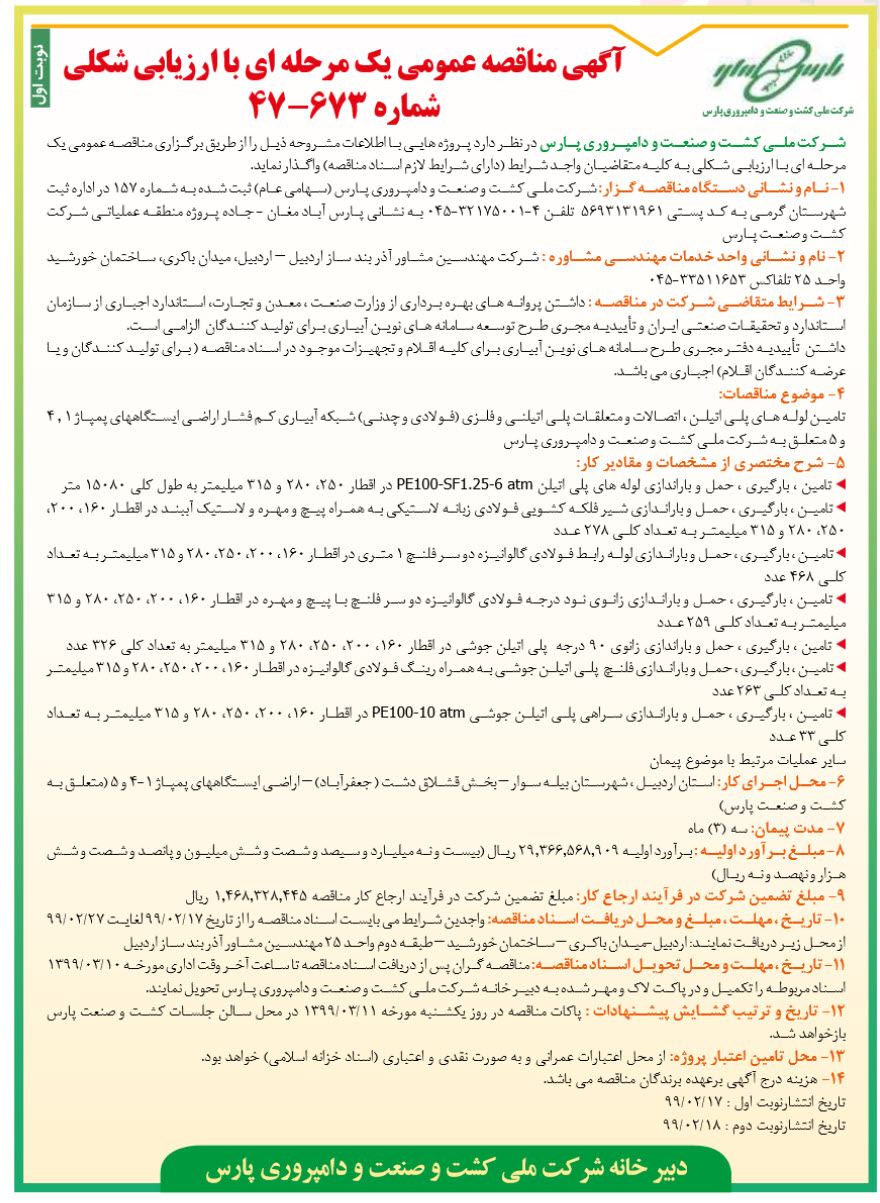 آگهی مناقصه عمومی یک مرحله ای با ارزیابی شکلی
شماره ۶۷۳-۴۷
نوبت اول
پارس
شرکت ملی کشت و صنعت و دامپروری پارس
شرکت ملی کشت و صنعت و دامپروری پارس در نظر دارد پروژه هایی با اطلاعات مشروحه ذیل را از طریق برگزاری مناقصه عمومی یک
مرحله ای با ارزیابی شکلی به کلیه متقاضیان واجد شرایط (دارای شرایط لازم اسناد مناقصه) واگذار نماید.
۱- نام و نشانی دستگاه مناقصه گزار: شرکت ملی کشت و صنعت و دامپروری پارس (سهامی عام) ثبت شده به شماره ۱۵۷ در اداره ثبت
شهرستان گرمی به کد پستی ۵۶۹۳۱۳۱۹۶۱ تلفن ۴-۳۲۱۷۵۰۰۱-۰۴۵ به نشانی پارس آباد مغان - جاده پروژه منطقه عملیاتی شرکت
کشت و صنعت پارس
۲- نام و نشانی واحد خدمات مهندسی مشاوره : شرکت مهندسین مشاور آذر بند ساز اردبیل – اردبیل، میدان باکری، ساختمان خورشید
واحد ۲۵ تلفاکس ۳۳۵۱۱۶۵۳-۰۴۵
۳- شرایط متقاضی شرکت در مناقصه : داشتن پروانه های بهره برداری از وزارت صنعت ، معدن و تجارت، استاندارد اجباری از سازمان
استاندارد و تحقیقات صنعتی ایران و تأییدیه مجری طرح توسعه سامانه های نوین آبیاری برای تولید کنندگان الزامی است.
داشتن تأییدیه دفتر مجری طرح سامانه های نوین آبیاری برای کلیه اقلام و تجهیزات موجود در اسناد مناقصه ( برای تولید کنندگان و یا
عرضه کنندگان اقلام) اجباری می باشد.
۴- موضوع مناقصات:
تامین لوله های پلی اتیلن ، اتصالات و متعلقات پلی اتیلنی و فلزی (فولادی و چدنی) شبکه آبیاری کم فشار اراضی ایستگاههای پمپاژ ۱ , ۴
و ۵ متعلق به شرکت ملی کشت و صنعت و دامپروری پارس
۵- شرح مختصری از مشخصات و مقادیر کار:
◄ تامین ، بارگیری ، حمل و باراندازی لوله های پلی اتیلن PE100-SF1.25-6 atm در اقطار ۲۵۰، ۲۸۰ و ۳۱۵ میلیمتر به طول کلی ۱۵۰۸۰ متر
◄ تامین ، بارگیری ، حمل و باراندازی شیر فلکه کشویی فولادی زبانه لاستیکی به همراه پیچ و مهره و لاستیک آببند در اقطار ۱۶۰، ۲۰۰،
۲۵۰، ۲۸۰ و ۳۱۵ میلیمتر به تعداد کلی ۲۷۸ عدد
◄ تامین ، بارگیری ، حمل و باراندازی لوله رابط فولادی گالوانیزه دو سر فلنج ۱ متری در اقطار ۱۶۰، ۲۰۰، ۲۵۰، ۲۸۰ و ۳۱۵ میلیمتر به تعداد
کلی ۴۶۸ عدد
◄ تامین ، بارگیری ، حمل و باراندازی زانوی نود درجه فولادی گالوانیزه دو سر فلنج با پیچ و مهره در اقطار ۱۶۰، ۲۰۰، ۲۵۰، ۲۸۰ و ۳۱۵
میلیمتر به تعداد کلی ۲۵۹ عدد
◄ تامین ، بارگیری ، حمل و باراندازی زانوی ۹۰ درجه پلی اتیلن جوشی در اقطار ۱۶۰، ۲۰۰، ۲۵۰، ۲۸۰ و ۳۱۵ میلیمتر به تعداد کلی ۳۲۶ عدد
◄ تامین، بارگیری ، حمل و باراندازی فلنج پلی اتیلن جوشی به همراه رینگ فولادی گالوانیزه در اقطار ۱۶۰، ۲۰۰، ۲۵۰، ۲۸۰ و ۳۱۵ میلیمتر
به تعداد کلی ۲۶۳ عدد
◄ تامین ، بارگیری ، حمل و باراندازی سراهی پلی اتیلن جوشی PE100-10 atm در اقطار ۱۶۰، ۲۰۰، ۲۵۰، ۲۸۰ و ۳۱۵ میلیمتر به تعداد
کلی ۳۳ عدد
سایر عملیات مرتبط با موضوع پیمان
۶- محل اجرای کار: استان اردبیل ، شهرستان بیله سوار – بخش قشلاق دشت ( جعفرآباد) – اراضی ایستگاههای پمپاژ ۱-۴ و ۵ (متعلق به
کشت و صنعت پارس)
۷- مدت پیمان: سه (۳) ماه
۸- مبلغ برآورد اولیه : برآورد اولیه ۲۹,۳۶۶,۵۶۸,۹۰۹ ریال (بیست و نه میلیارد و سیصد و شصت و شش میلیون و پانصد و شصت و شش
هزار و نهصد و نه ریال)
۹- مبلغ تضمین شرکت در فرآیند ارجاع کار: مبلغ تضمین شرکت در فرآیند ارجاع کار مناقصه ۱,۴۶۸,۳۲۸,۴۴۵ ریال
۱۰- تاریخ ، مهلت ، مبلغ و محل دریافت اسناد مناقصه: واجدین شرایط می بایست اسناد مناقصه را از تاریخ ۹۹/۰۲/۱۷ لغایت ۹۹/۰۲/۲۷
از محل زیر دریافت نمایند: اردبیل–میدان باکری – ساختمان خورشید – طبقه دوم واحد ۲۵ مهندسین مشاور آذر بند ساز اردبیل
۱۱- تاریخ ، مهلت و محل تحویل اسناد مناقصه: مناقصه گران پس از دریافت اسناد مناقصه تا ساعت آخر وقت اداری مورخه ۱۳۹۹/۰۳/۱۰
اسناد مربوطه را تکمیل و در پاکت لاک و مهر شده به دبیر خانه شرکت ملی کشت و صنعت و دامپروری پارس تحویل نمایند.
۱۲- تاریخ و ترتیب گشایش پیشنهادات : پاکات مناقصه در روز یکشنبه مورخه ۱۳۹۹/۰۳/۱۱ در محل سالن جلسات کشت و صنعت پارس
بازخواهد شد.
۱۳- محل تامین اعتبار پروژه: از محل اعتبارات عمرانی و به صورت نقدی و اعتباری (اسناد خزانه اسلامی) خواهد بود.
۱۴- هزینه درج آگهی برعهده برندگان مناقصه می باشد.
تاریخ انتشارنوبت اول : ۹۹/۰۲/۱۷
تاریخ انتشارنوبت دوم : ۹۹/۰۲/۱۸
دبیر خانه شرکت ملی کشت و صنعت و دامپروری پارس